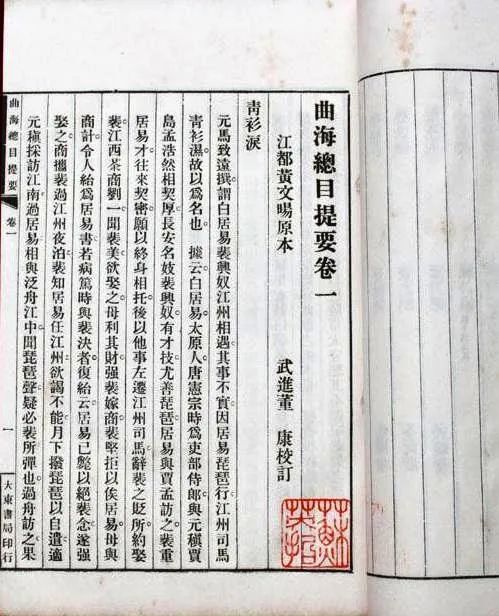 曲海總目提要卷一
江都黃文暘原本
武進董　康校訂
靑衫淚
元馬致遠撰謂白居易裴興奴江州相遇其事不實因居易琵琶行江州司馬
靑衫濕故以爲名也據云白居易太原人唐憲宗時爲吏部侍郞與元稹賈
島孟浩然相契厚長安名妓裴興奴有才技尤善琵琶居易與賈孟訪之裴重
居易才往來契密願以終身相托後以他事左遷江州司馬辭裴之貶所約娶
裴江西茶商劉一聞裴美欲娶之母利其財強裴嫁商裴堅拒以俟居易母與
商計令人紿爲居易書若病篤時與裴決者復紿云居易已斃以絕裴念遂強
娶之商攜裴過江州夜泊裴知居易任江州欲謁不能月下撥琵琶以自遣適
元稹採訪江南過居易相與泛舟江中聞琵琶聲疑必裴所彈也過舟訪之果
曲海總目提要　卷一
一
大東書局印行